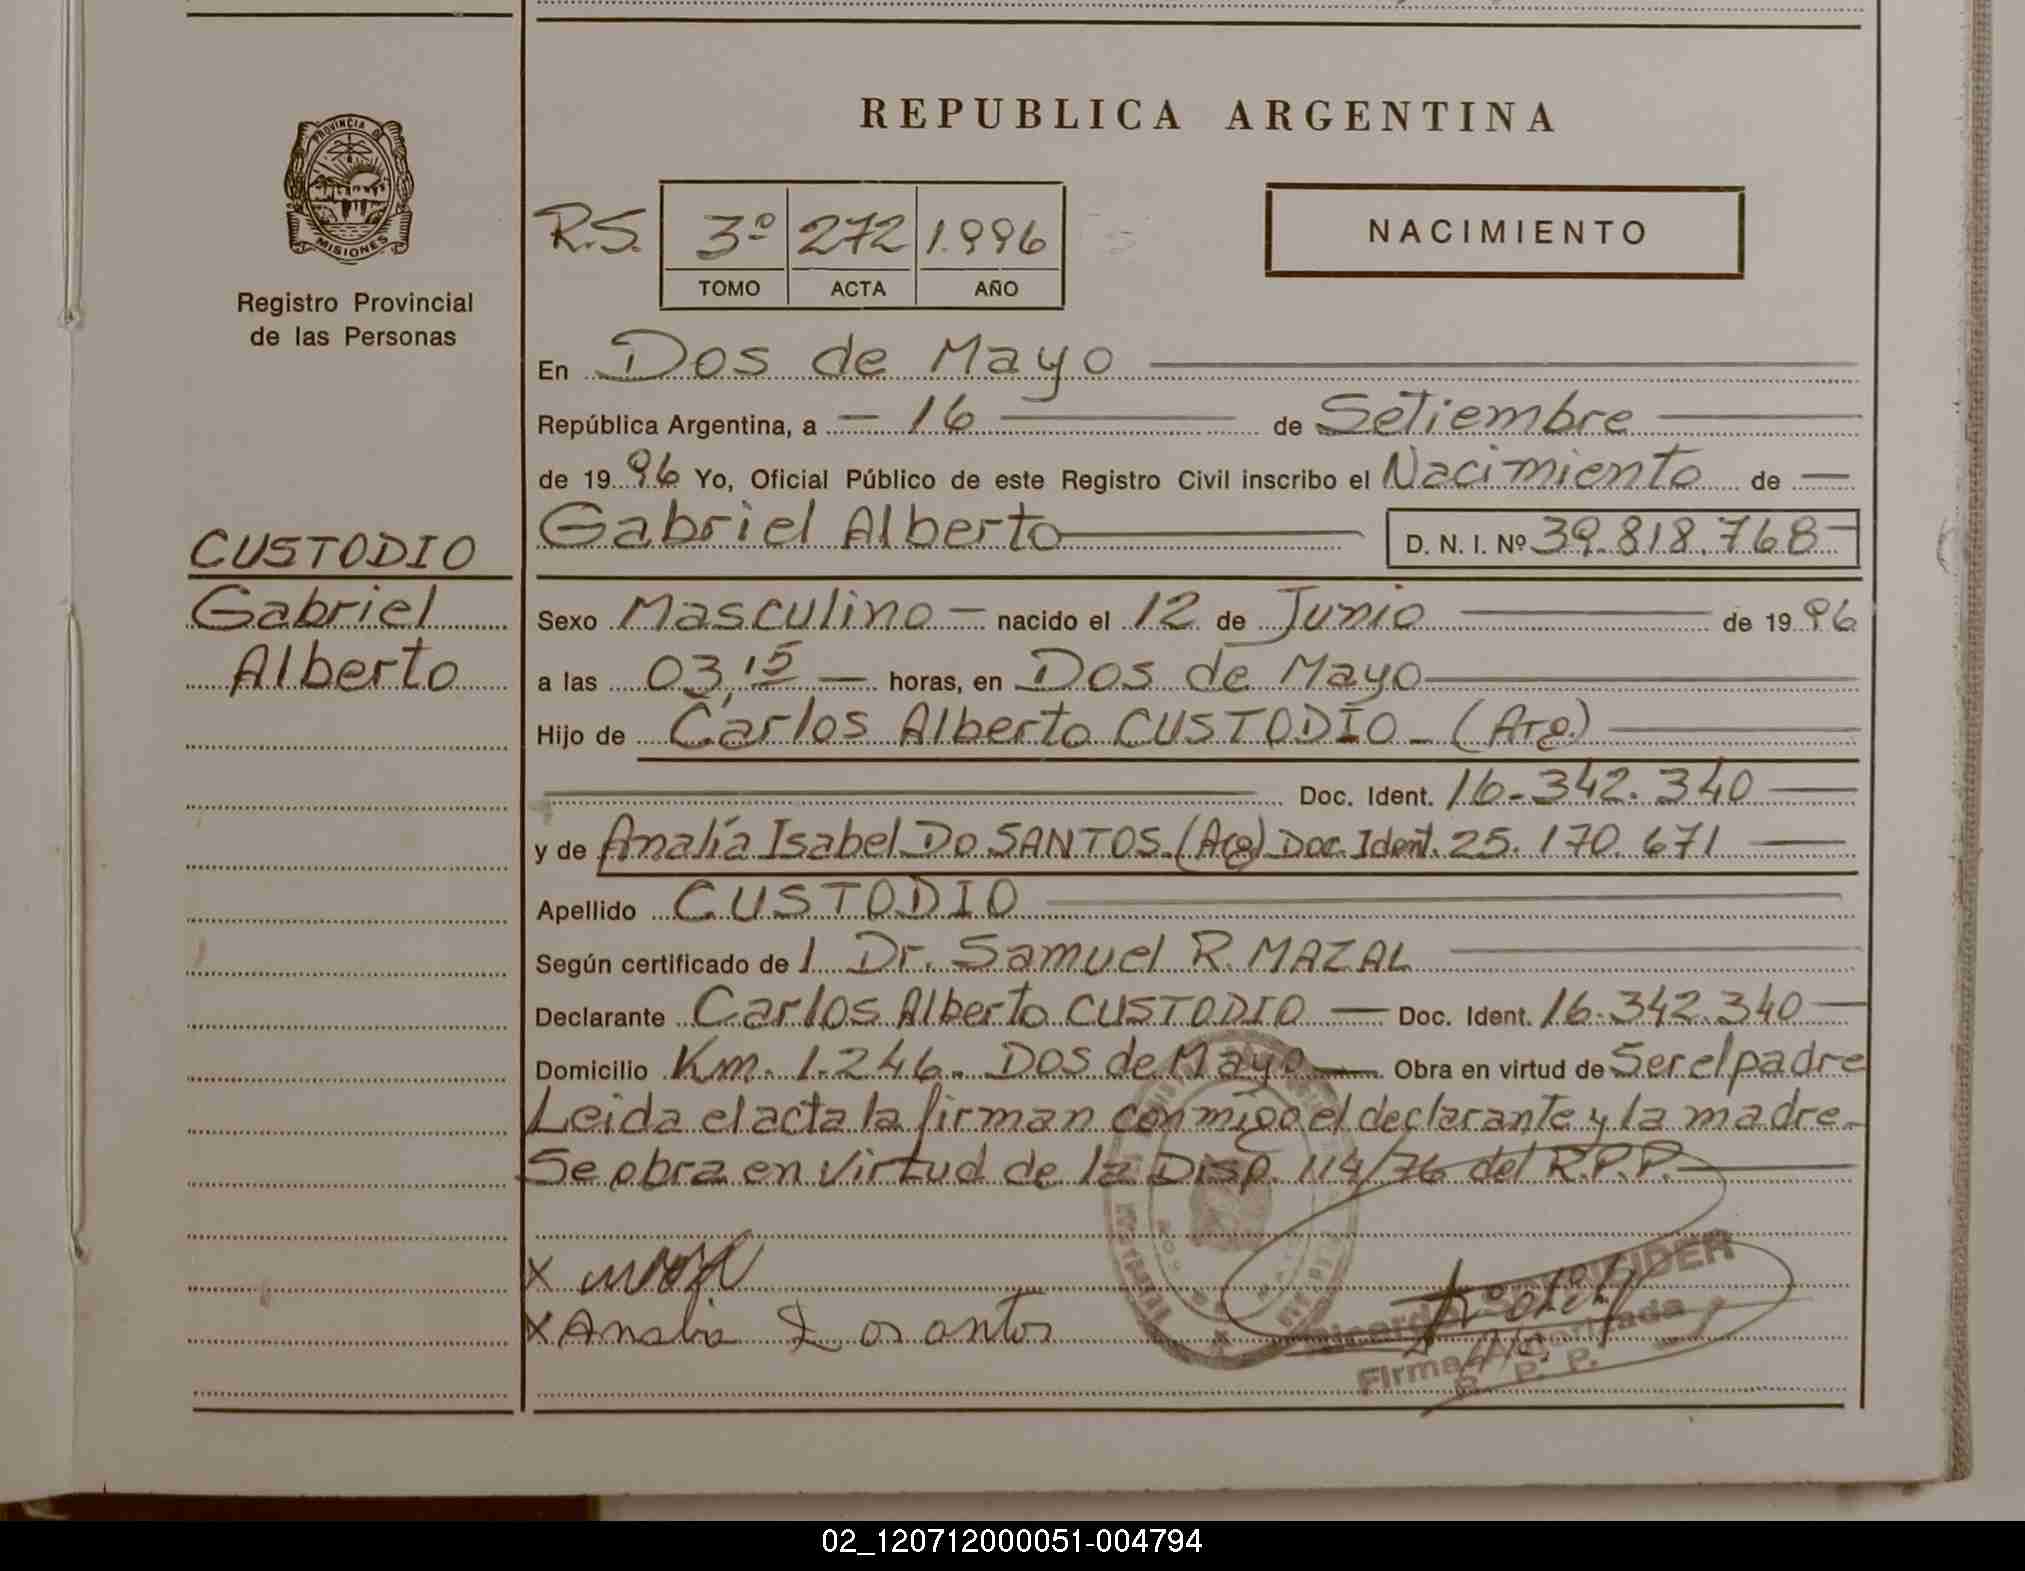 REPUBLICA ARGENTINA
PROVINCIA DE
MISIONES
Registro Provincial
de las Personas
R.S. 3º 272 1.996
TOMO ACTA AÑO
NACIMIENTO
En Dos de Mayo
República Argentina, a 16 de Setiembre
de 1996 Yo, Oficial Público de este Registro Civil inscribo el Nacimiento de
Gabriel Alberto D. N. I. Nº 39.818.768
CUSTODIO
Gabriel
Alberto
Sexo Masculino nacido el 12 de Junio de 1996
a las 03,15 horas, en Dos de Mayo
Hijo de Carlos Alberto CUSTODIO - (Arg.)
Doc. Ident. 16-342.340
y de Analía Isabel Do SANTOS (Arg) Doc. Ident. 25.170.671
Apellido CUSTODIO
Según certificado del Dr. Samuel R. MAZAL
Declarante Carlos Alberto CUSTODIO Doc. Ident. 16.342.340
Domicilio Km. 1.246. Dos de Mayo Obra en virtud de Ser el padre
Leida el acta la firman conmigo el declarante y la madre.
Se obra en virtud de la Disp. 114/76 del R.P.P.
X
X Analia antos
Ricardo
Firma Autorizada
R. P. P.
02_120712000051-004794